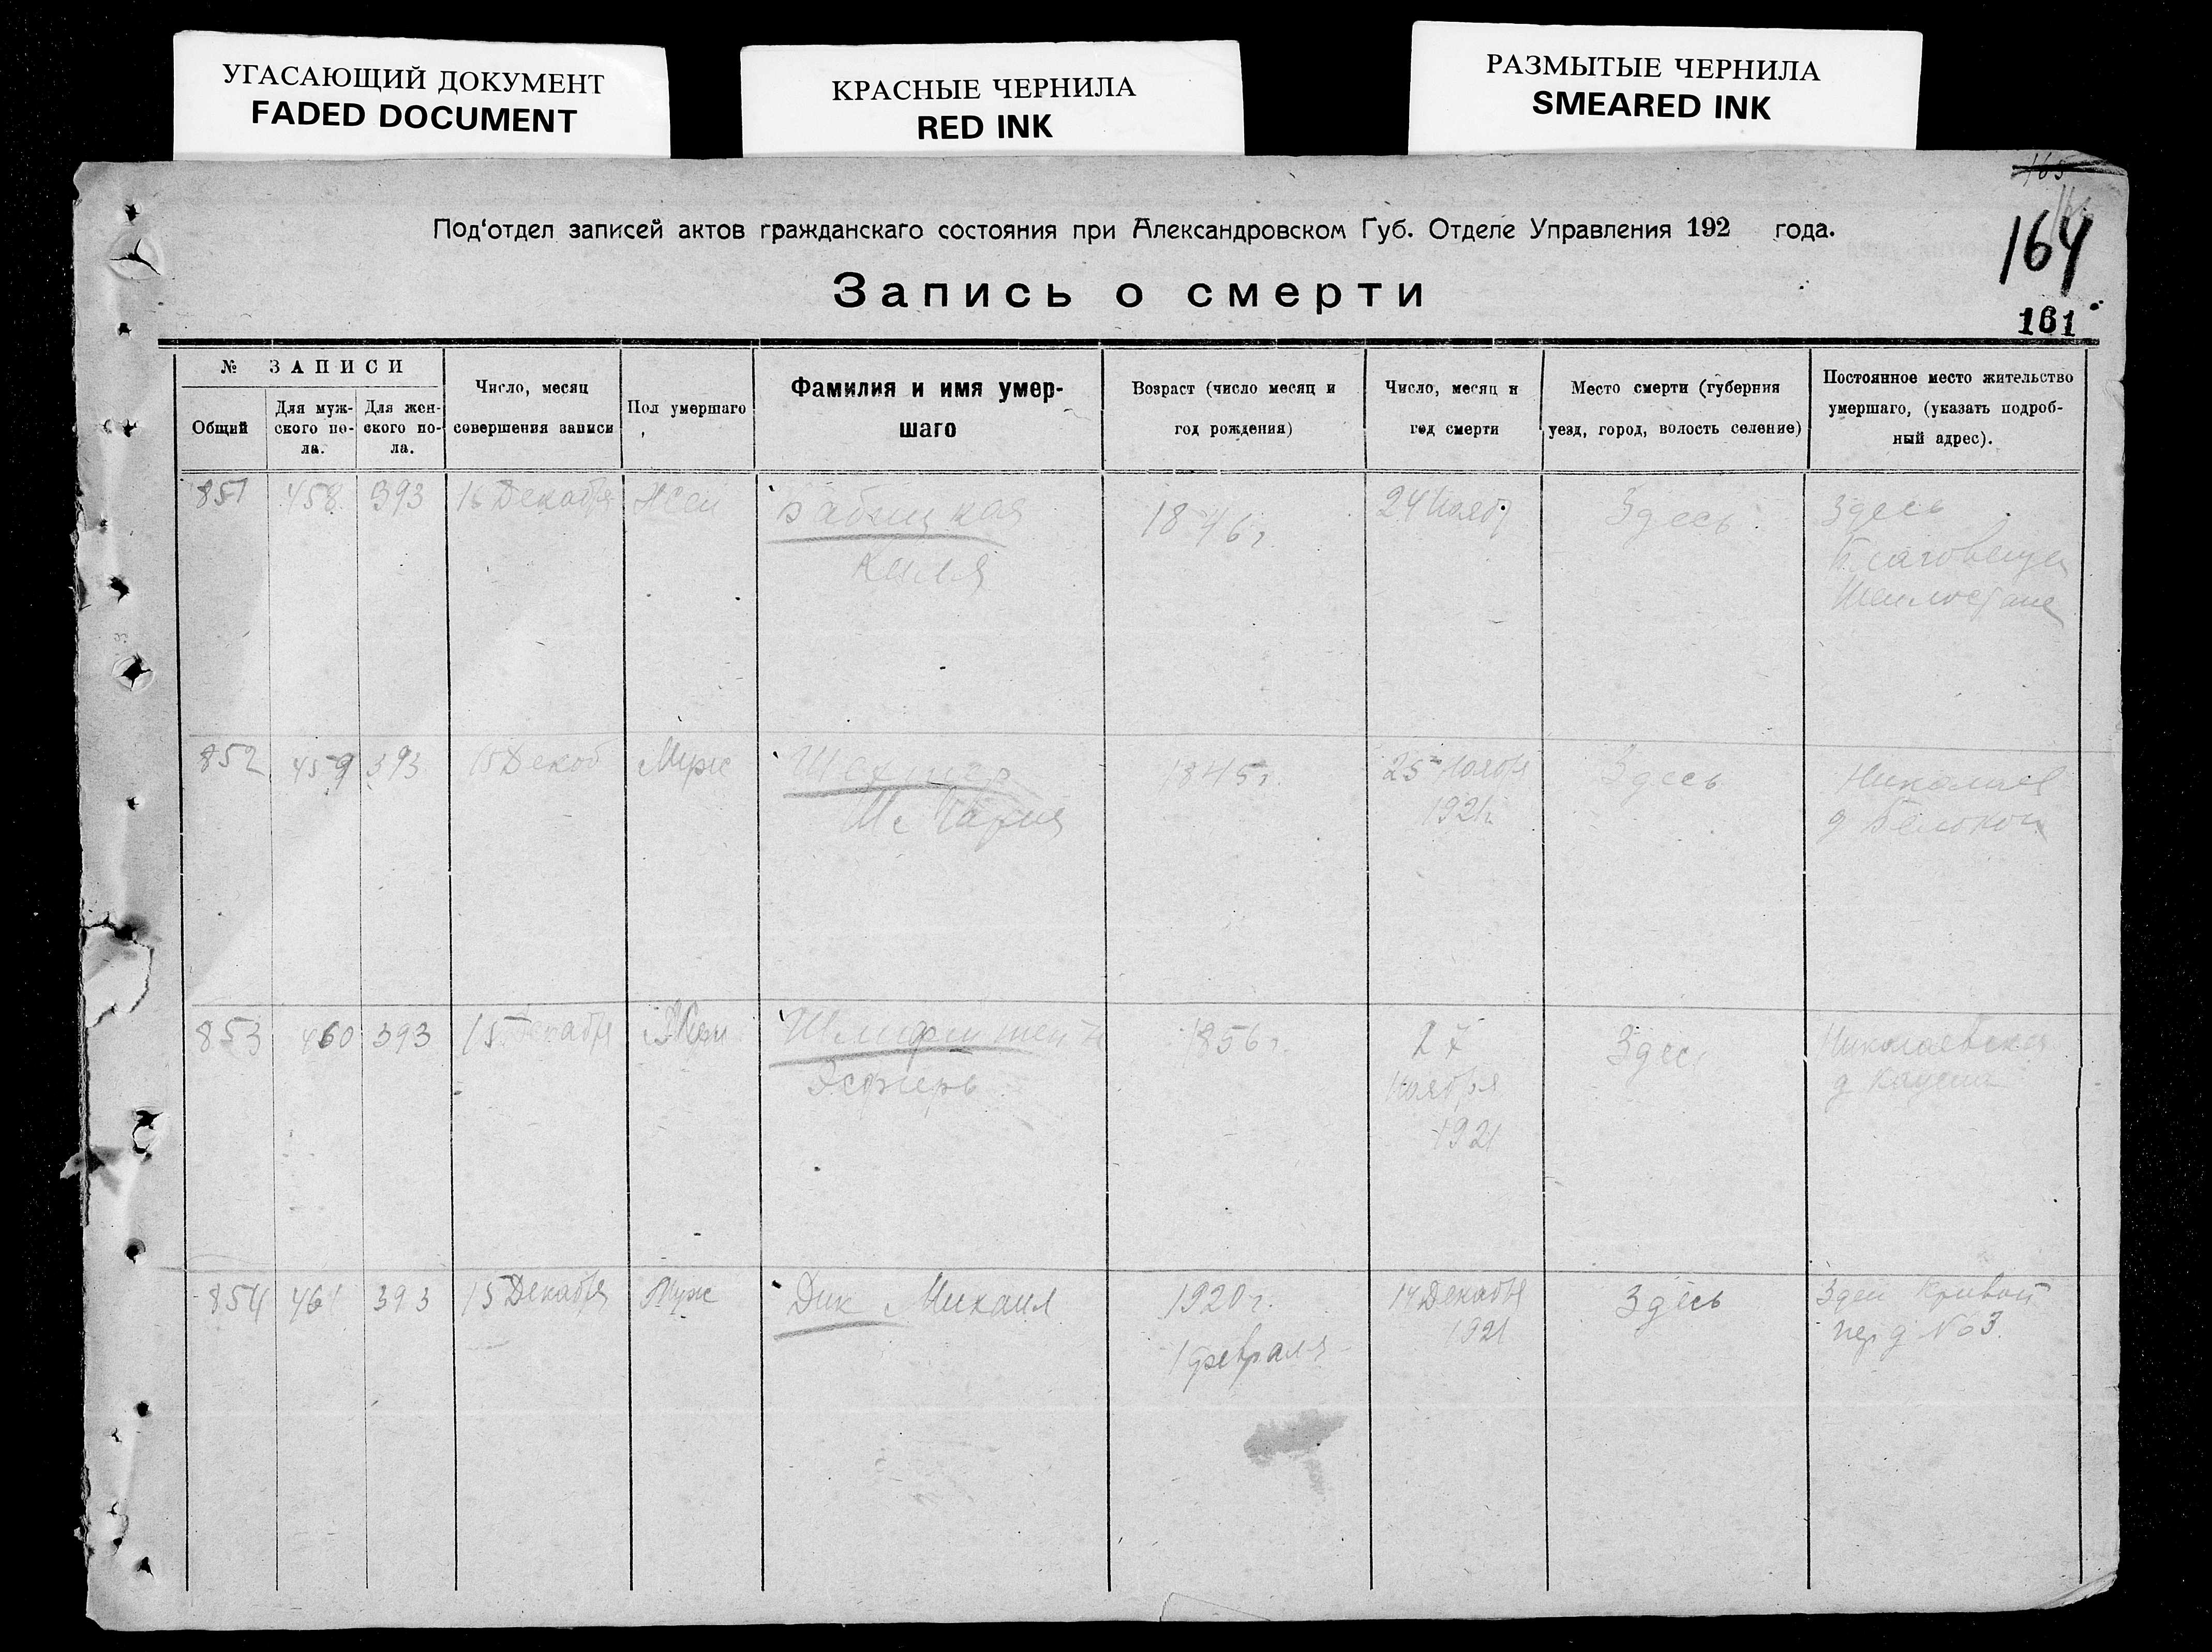 УГАСАЮЩИЙ ДОКУМЕНТ
FADED DOCUMENT
КРАСНЫЕ ЧЕРНИЛА
RED INK
РАЗМЫТЫЕ ЧЕРНИЛА
SMEARED INK
165
164
161
Под‘отдел записей актов гражданскаго состояния при Александровском Губ. Отделе Управления 192 года.
Запись о смерти
№ ЗАПИСИ
Общий
Для муж-
ского по-
ла.
Для жен-
ского по-
ла.
Число, месяц
совершения записи
Пол умершаго
Фамилия и имя умер-
шаго
Возраст (число месяц и
год рождения)
Число, месяц и
год смерти
Место смерти (губерния
уезд, город, волость селение)
Постоянное место жительство
умершаго, (указать подроб-
ный адрес).
851 458 393 16 Декабря Жен
Бабицкая
1846 г.
24 Нояб
Здесь
Здесь
852 459 393 15 Декаб Муж
1845 г.
25 Ноября
1921 г.
Здесь
853 460 393 15 Декабря
Эсфирь
1856 г.
27
Ноября
1921
Здесь
Николаевская
854 461 393 15 Декабря Муж
Дик Михаил
1920 г.
1 февраля
14 Декабря
1921
Здесь
Кривой
пер д № 3.